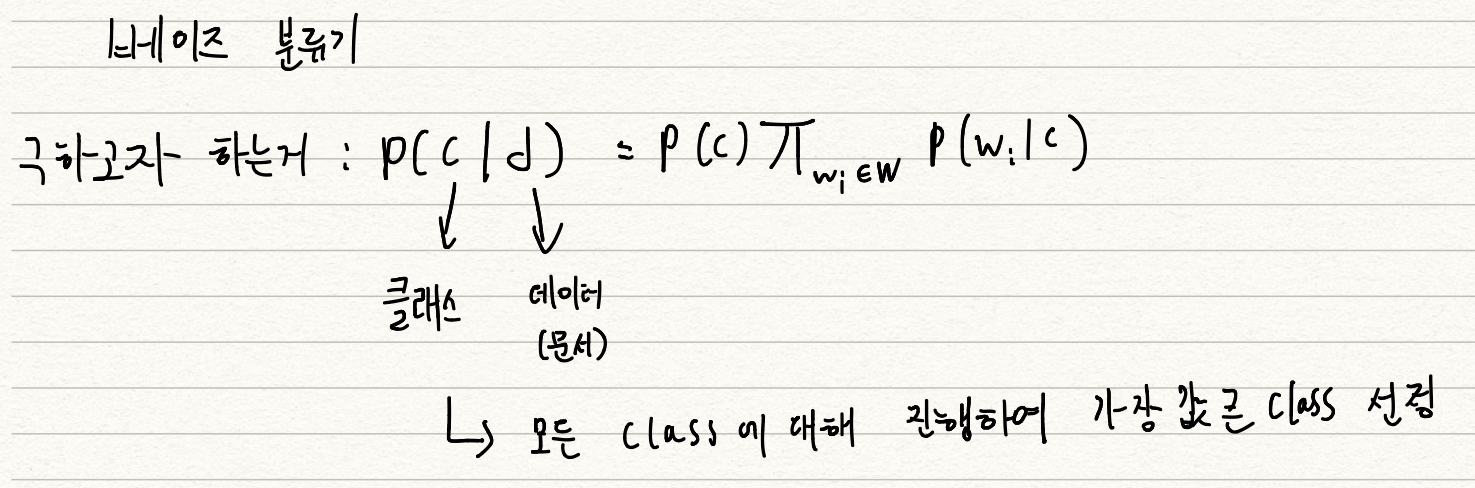 베이즈 분류기
구하고자 하는거 : P(c|d) = P(c) ∏ wi∈W P(wi|c)
클래스 데이터
(문서)
↳ 모든 class에 대해 진행하여 가장 값 큰 class 선정